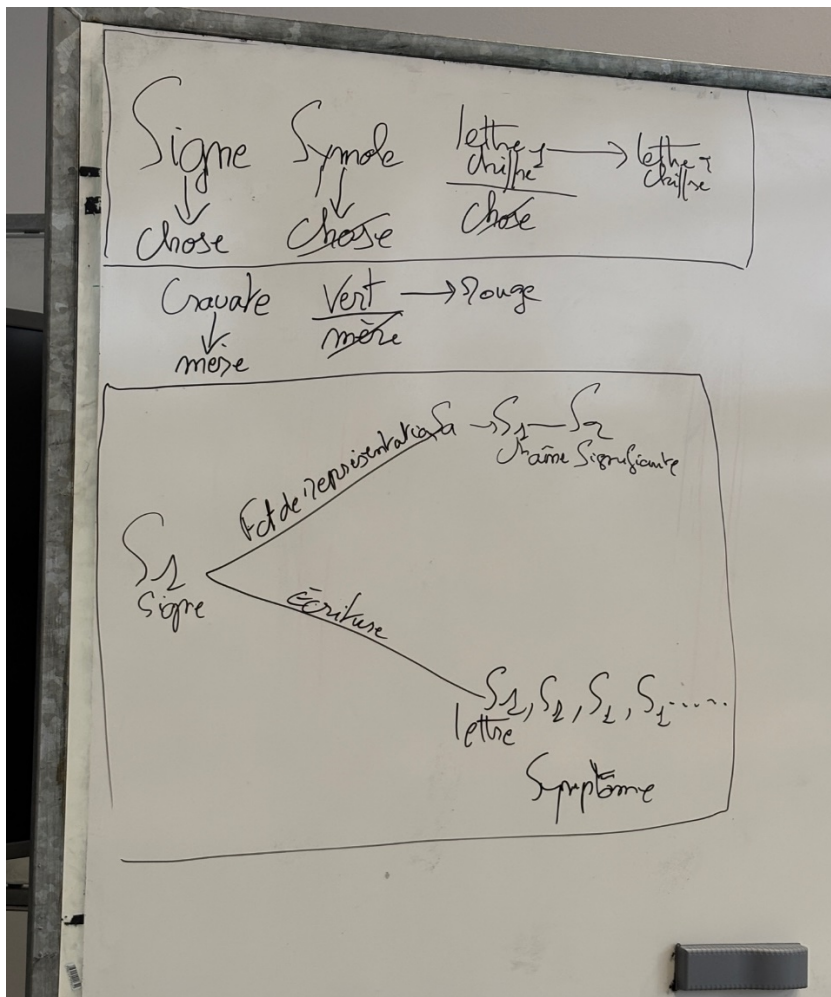 Signe Symole lettre 1 → lettre 2
chiffre chiffre
↓ ↓
Chose Chose Chose
Cravate Vert → Rouge
↓
mère mère
Fct de représentation Sa → S1 — S2
Chaîne Signifiante
S1
Signe
écriture
S1, S1, S1, S1.....
lettre
Symptôme